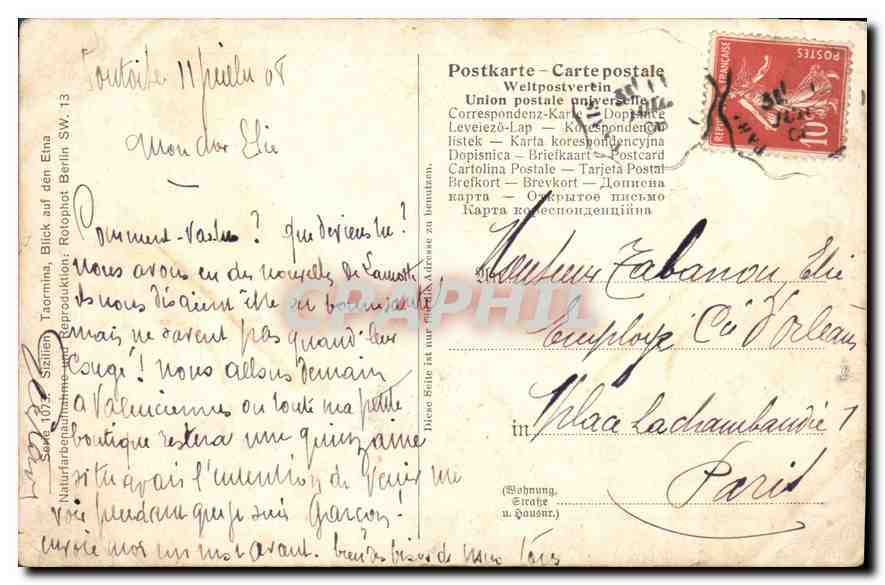 Pontoise 11 juillet 08
Mon cher Elie
Comment vas-tu? que deviens tu?
nous avons eu des nouvelles de
ils nous disaient être en bonne santé
mais ne savent pas quand leur
Congé! Nous allons demain
a Valenciennes ou toute ma petite
boutique restera une quinzaine
si tu avais l'intention de venir me
voir pendant que je suis Garçon!
envoie moi un mot avant. bien des bises de nous tous
Gaston
Serie 1073. Sizilien, Taormina, Blick auf den Etna
Naturfarbenaufnahme und Reproduktion: Rotophot Berlin SW. 13
Diese Seite ist nur für die Adresse zu benutzen.
Postkarte – Carte postale
Weltpostverein
Union postale universelle
Correspondenz-Karte – Dopisnice
Levelező-Lap – Korespondencni
listek – Karta korespondencyjna
Dopisnica – Briefkaart – Postcard
Cartolina Postale – Tarjeta Postal
Brefkort – Brevkort – Дописна
карта – Открытое письмо
Карта кореспонденційна
REPUBLIQUE FRANÇAISE
POSTES
10
Monsieur Tabanou Elie
Employé Cie d'Orléans
in Place Lachambaudie 1
Paris
(Wohnung,
Straße
u. Hausnr.)
CPAPHIL